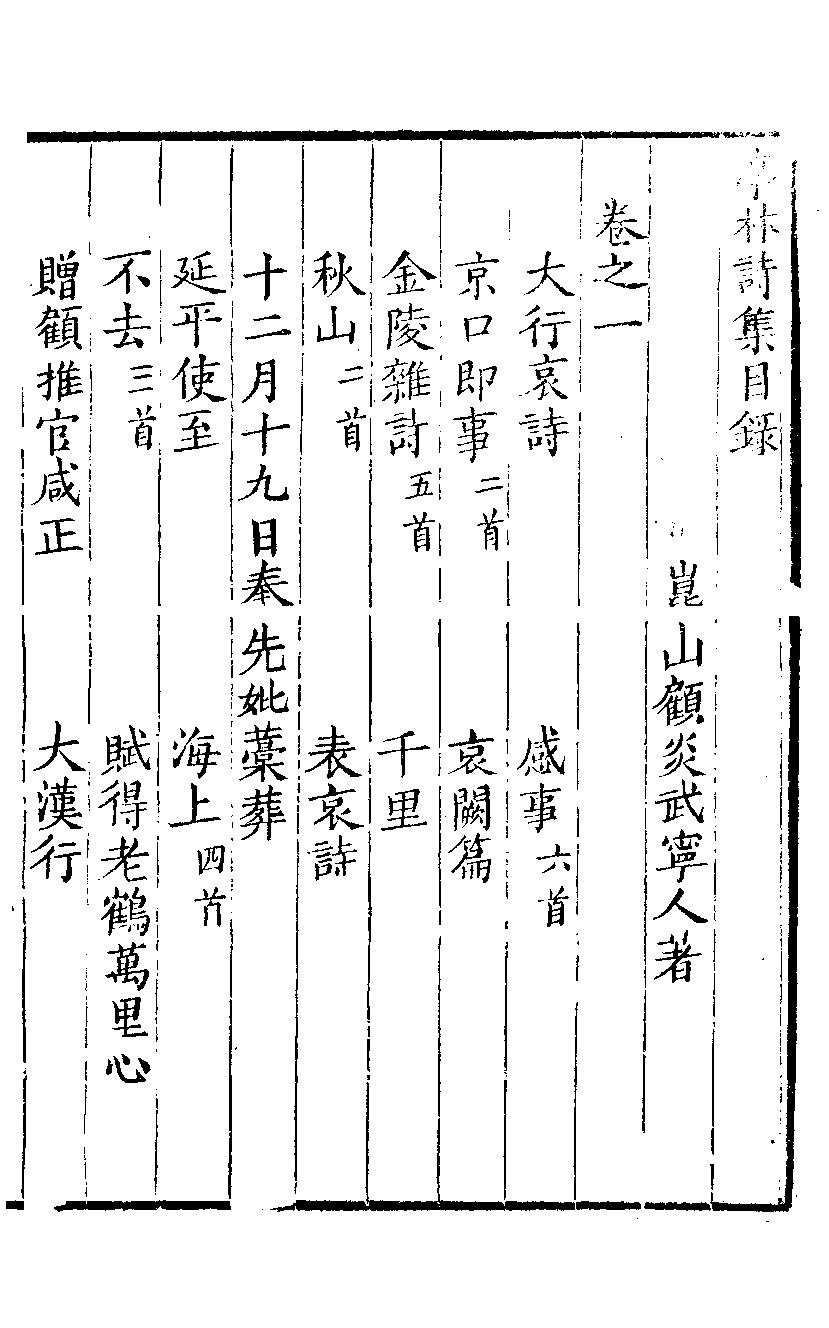 亭林詩集目錄
崑山顧炎武寧人著
卷之一
大行哀詩　感事六首
京口即事二首　哀闕篇
金陵雜詩五首　千里
秋山二首　表哀詩
十二月十九日奉先妣藁葬
延平使至　海上四首
不去三首　賦得老鶴萬里心
贈顧推官咸正　大漢行